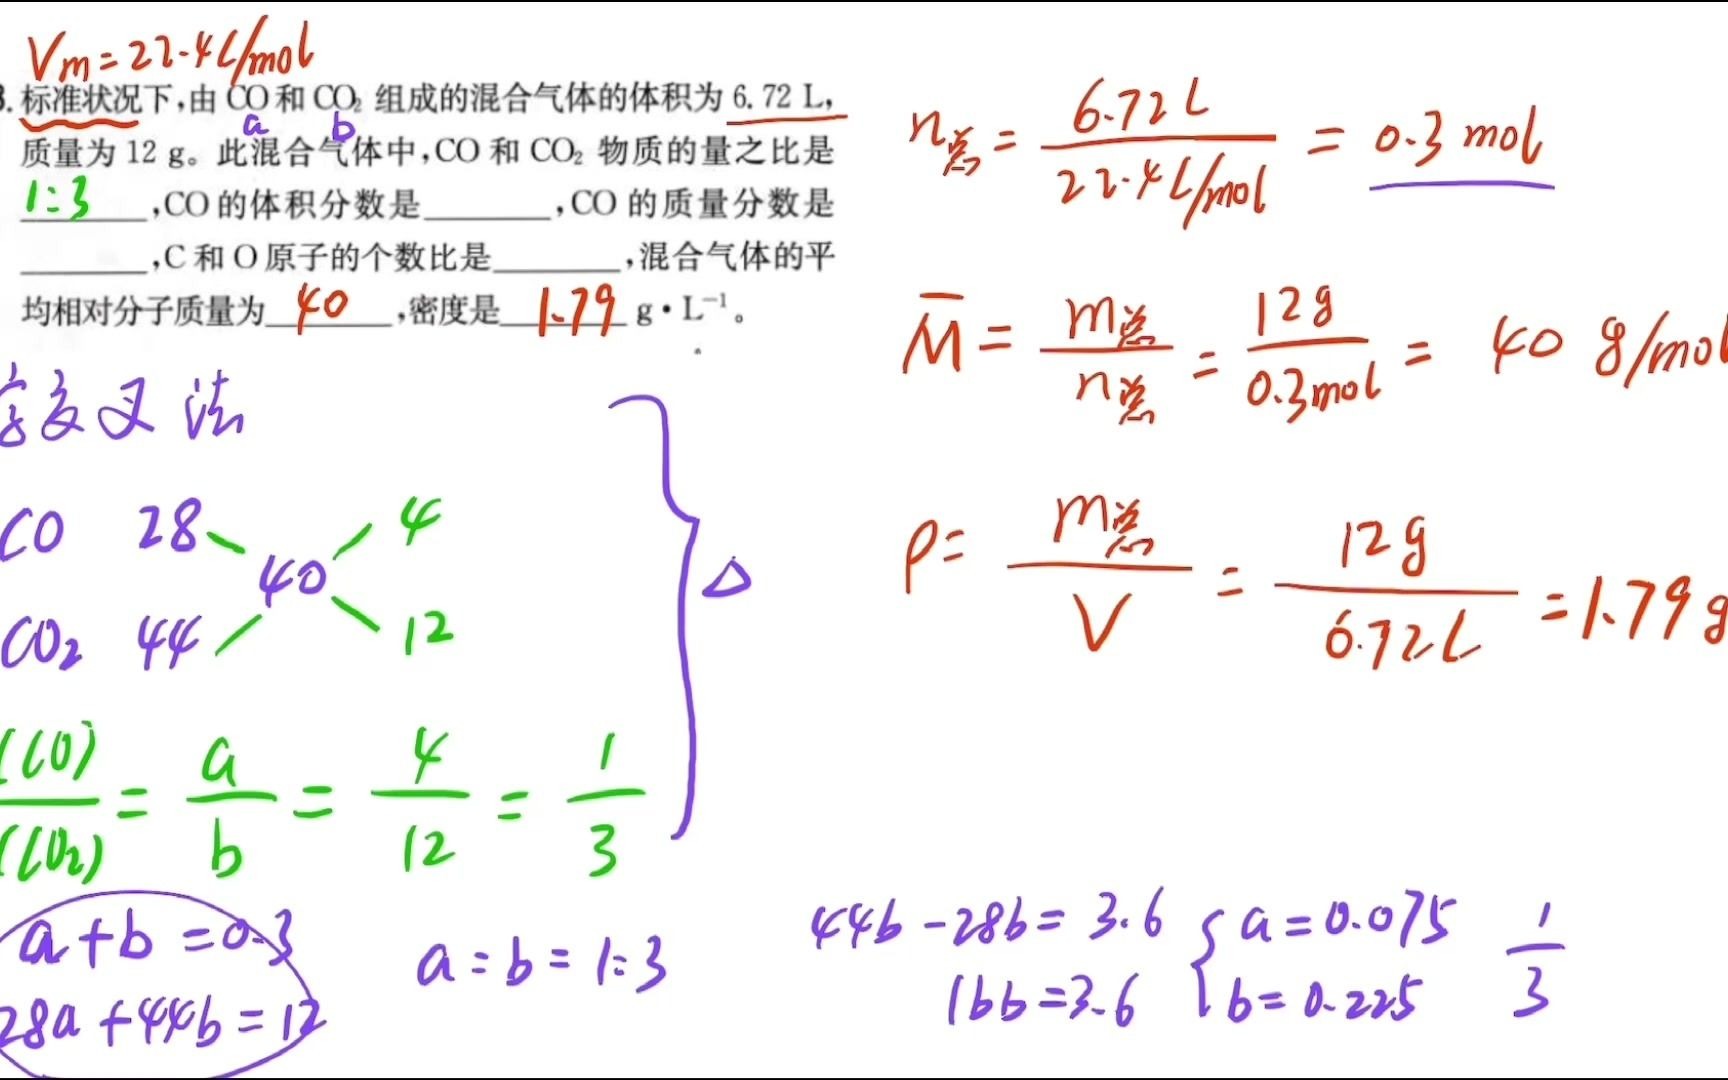 Vm=22.4L/mol
3.标准状况下,由CO和CO₂组成的混合气体的体积为6.72 L,
a b
质量为12 g。此混合气体中,CO和CO₂物质的量之比是
1:3 ,CO的体积分数是________,CO的质量分数是
________,C和O原子的个数比是________,混合气体的平
均相对分子质量为 40 ,密度是 1.79 g·L⁻¹。
交叉法
CO 28 4
40
CO₂ 44 12
(CO)/(CO₂) = a/b = 4/12 = 1/3
△
a+b=0.3
28a+44b=12
a:b=1:3
n总 = 6.72L/22.4L/mol = 0.3 mol
M̄ = m总/n总 = 12g/0.3mol = 40 g/mol
ρ = m总/V = 12g/6.72L = 1.79 g
44b-28b=3.6
16b=3.6
{a=0.075
b=0.225
1/3